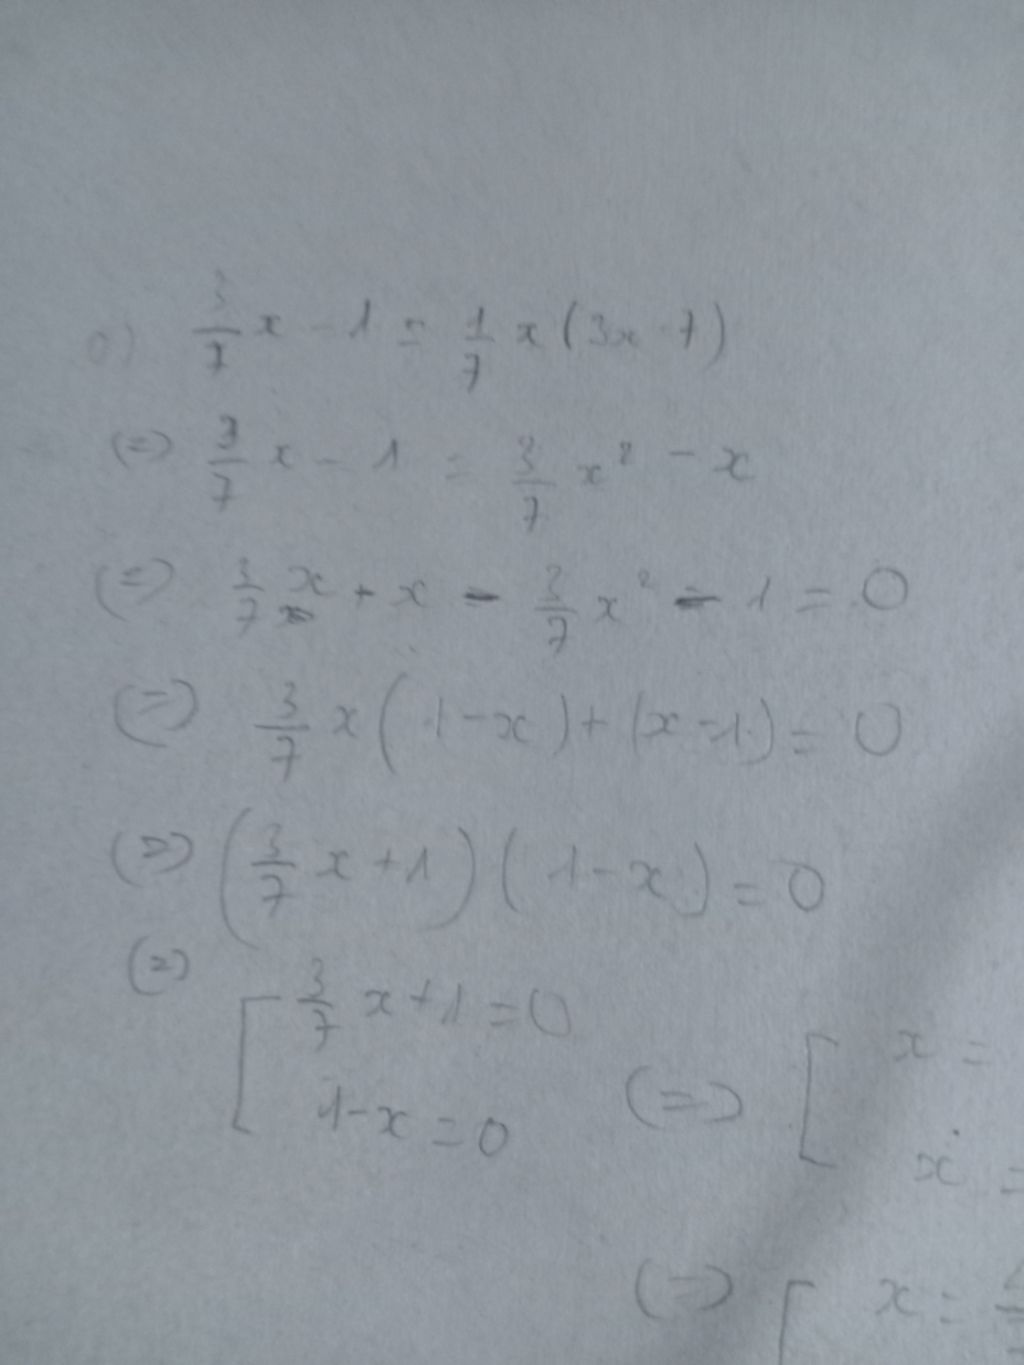 c) 3/7 x - 1 = 1/7 x (3x - 7)
(=) 3/7 x - 1 = 3/7 x² - x
(=) 3/7 x + x - 3/7 x² - 1 = 0
(=) 3/7 x (1 - x) + (x - 1) = 0
(=) (3/7 x + 1) (1 - x) = 0
(=) [ 3/7 x + 1 = 0
1 - x = 0
(=) [ x =
x =
(=) [ x =